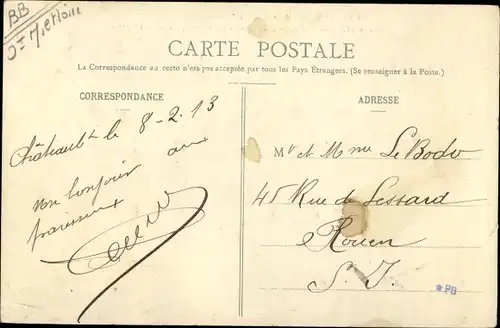 BB
CARTE POSTALE
La Correspondance au recto n'est pas acceptée par tous les Pays Étrangers. (Se renseigner à la Poste.)
CORRESPONDANCE
ADRESSE
le 8-2.13
un bonjour aux
Mr et Mme Le Bodo
45 Rue de Lessard
Rouen
S. I.
*PB